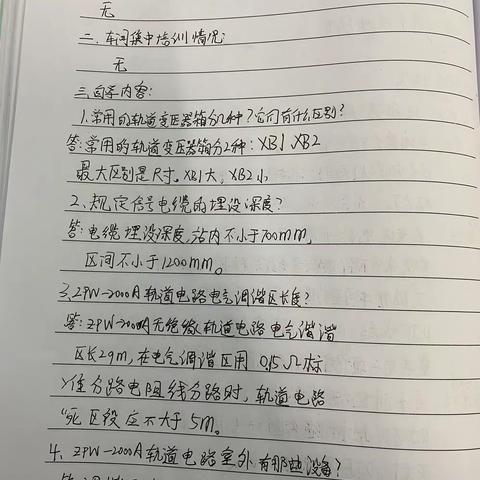 无
二、车间集中培训情况:
无
三、自学内容:
1、常用的轨道变压器箱分几种?它们有什么区别?
答:常用的轨道变压器箱分2种:XB1、XB2
最大区别是尺寸。XB1大,XB2小
2、规定信号电缆的埋设深度?
答:电缆埋设深度,站内不小于700mm,
区间不小于1200mm。
3、ZPW-2000A轨道电路电气调谐区长度?
答:ZPW-2000A无绝缘轨道电路电气谐谐
区长29m,在电气调谐区用0.15Ω标
准分路电阻线分路时,轨道电路
"死区段应不大于5m。
4、ZPW-2000A轨道电路室外有那些设备?
答:调谐